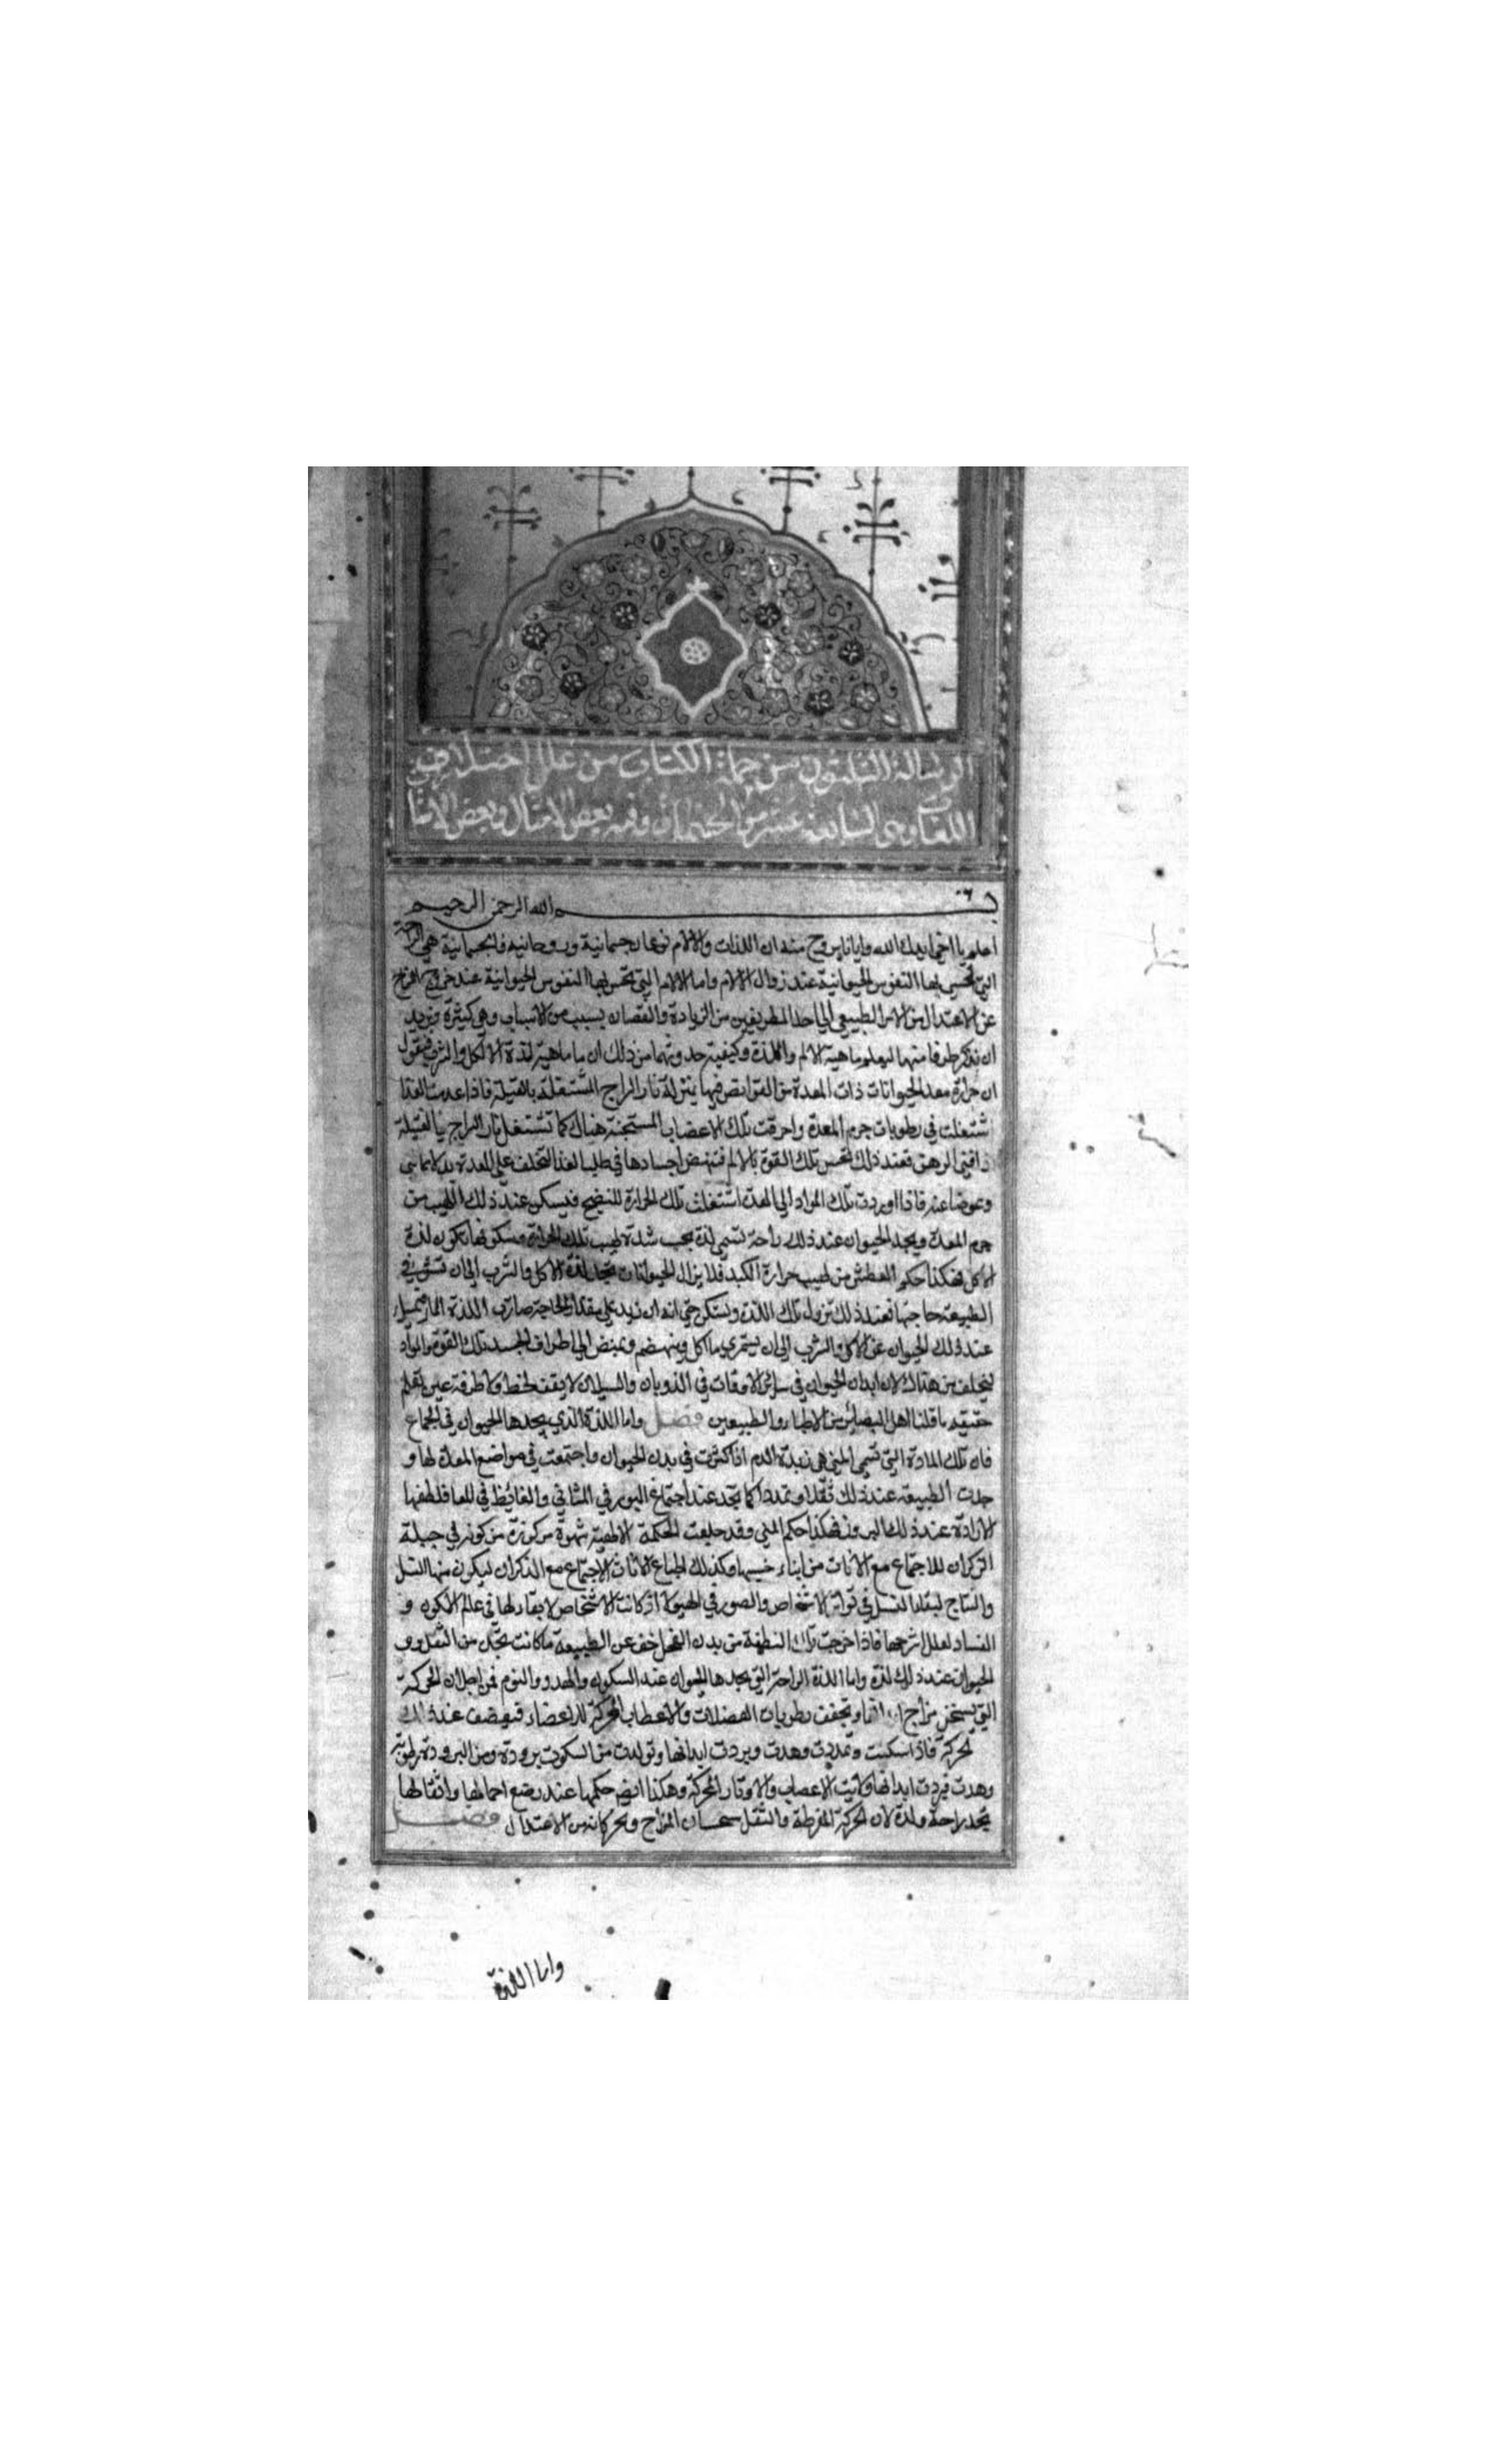 الرسالة الثلثون من جملة الكتاب من علل اختلاف
اللغات وهي السابعة عشر من الجسمانيات وفيه بعض الامثال وبعض
بسم الله الرحمن الرحيم
اعلم يا اخي ايدك الله وايانا بروح منه ان اللذات والالام نوعان جسمانية وروحانية فالجسمانية هي الراحة
التي تحس بها النفوس الحيوانية عند زوال الالام واما الالام التي تحس بها النفوس الحيوانية عند خروج المزاج
عن الاعتدال من الامر الطبيعي الي احد الطريفين من الزيادة والنقصان بسبب من الاسباب وهي كثيرة ونريد
ان نذكر طرفا منها ليعلم ماهية الالم واللذة وكيفية حدوثهما من ذلك ان ما ماهية لذة الاكل والشرب فنقول
ان حرارة معد الحيوانات ذات المعدة من الفرايص فيها بمنزلة نار السراج المشتعلة بالفتيلة فاذا عدمت الغذا
اشتعلت في رطوبات جرم المعدة واحرقت تلك الاعصاب المستجنة هناك كما تشتعل نار السراج بالفتيلة
اذا فني الدهن فعند ذلك تحس تلك القوة بالالم فتنهض اجسادها في طلب الغذا لتخلف علي المعدة بدلا
وعوضا عنه فاذا اوردت تلك المواد الي المعدة اشتغلت تلك الحرارة للنضج فيسكن عند ذلك اللهيب من
جرم المعدة ويجد الحيوان عند ذلك راحة تسمي لذة بحسب شدة لهيب تلك الحرارة وسكونها تكون لذة
الاكل فهكذا حكم العطش من لهيب حرارة الكبد فلا يزال الحيوانات تجد لذة الاكل والشرب الي ان تستوفي
الطبيعة حاجتها فعند ذلك تزول تلك اللذة وتسكن حتي انه ان زيد علي مقدار الحاجة صارت اللذة الما
عند ذلك الحيوان عن الاكل والشرب الي ان يستمري ما اكل وينهضم وتمتص الي اطراف الجسد تلك القوة والمواد
ليخلف من هناك لان ابدان الحيوان في سائر الاوقات في الذوبان والسيلان لا يقف لحظة ولا طرفة عين يعلم
حقيقه ما قلنا اهل البصائر من الاطبا والطبيعين فصل واما اللذة الذي يجدها الحيوان في الجماع
فان تلك المادة التي تسمي المني هي زبدة الدم اذا كثرت في بدن الحيوان واجتمعت في مواضع المعدة لها و
جدت الطبيعة عند ذلك ثقلا وتمددا كما يجد عند اجتماع البول في المثاني والغائط في المعا
الارادة عند ذلك البروز فهكذا حكم المني وقد جعلت الحكمة الالهية شهوة مركوزة في جبلة
الذكران للاجتماع مع الاناث من ابناء جنسها وكذلك طباع الاناث الاجتماع مع الذكران ليكون منها النسل
والنتاج لبقاء النسل في تواتر الاشخاص والصور في الهيولا اذ كانت الاشخاص لا بقاء لها في عالم الكون و
الفساد لعلل شرحها فاذا خرجت تلك النطفة من بدن الفحل خف عن الطبيعة ما كانت تجد من الثقل ووجد
الحيوان عند ذلك لذة واما اللذة الراحة التي يجدها الحيوان عند السكون والهدو والنوم فمن اجل ان الحركة
التي يسخن مزاج ابدانها وتجفف رطوبات العضلات والاعصاب المحركة للاعضاء فيعرض عند ذلك
الحركة فاذا سكنت وتمددت وهدت وبردت ابدانها وتولدت من السكون برودة ومن البرودة رطوبة
وهدت فبردت ابدانها ولانت الاعصاب والاوتار المحركة وهكذا ايضا حكمها عند وضع احمالها واثقالها
تجد راحة ولذة لان الحركة المفرطة والثقل يسخنان المزاج ويخرجانه من الاعتدال فصل
واما اللذة